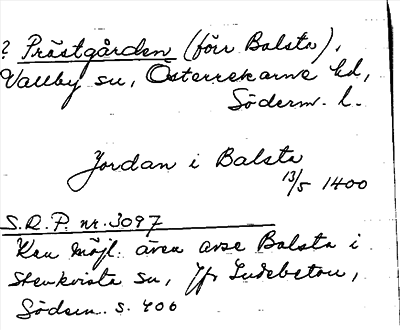 ? Prästgården (förr Balsta),
Vallby sn, Österrekarne hd,
Söderm. l.
Jordan i Balsta
13/5 1400
S.R.P. nr. 3097
Kan möjl. även avse Balsta i
Stenkvista sn, jfr Indebetou,
Söderm. s. 406